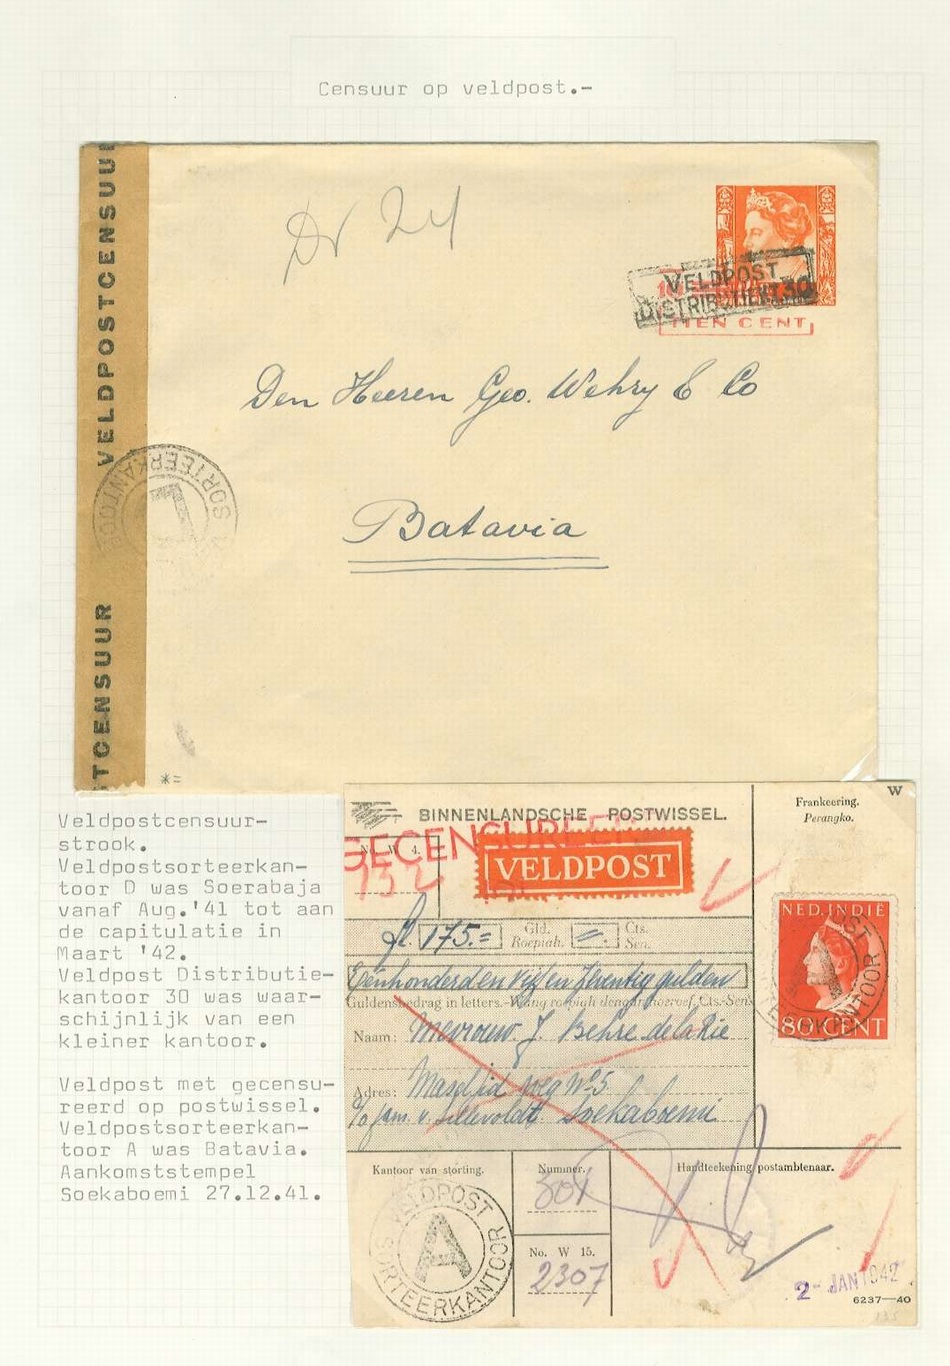 Censuur op veldpost.-
VELDPOSTCENSUUR
STCENSUUR
Dr 24
VELDPOST
DISTRIBUTIEKT.30
TIEN CENT
Den Heeren Geo. Wehry & Co
Batavia
SORTEERKANTOOR
*=
Veldpostcensuur-
strook.
Veldpostsorteerkan-
toor D was Soerabaja
vanaf Aug.'41 tot aan
de capitulatie in
Maart '42.
Veldpost Distributie-
kantoor 30 was waar-
schijnlijk van een
kleiner kantoor.
Veldpost met gecensu-
reerd op postwissel.
Veldpostsorteerkan-
toor A was Batavia.
Aankomststempel
Soekaboemi 27.12.41.
BINNENLANDSCHE POSTWISSEL.
GECENSUREERD
No. W 4.
132
VELDPOST
W
Frankeering.
Perangko.
NED. INDIË
80 CENT
VELDPOST SORTEERKANTOOR A
fl. 175.= Gld. =. Cts.
Roepiah. Sen.
Eénhonderd en vijf en zeventig gulden
Guldensbedrag in letters.-Wang roepiah dengan hoeroef. Cts.-Sen.
Naam: Mevrouw. J. Behre de la Rie
Adres: Masdjid weg No. 5
c/o fam. v. Lillevoldt Soekaboemi
Kantoor van storting.
Nummer.
Handteekening postambtenaar.
301
VELDPOST SORTEERKANTOOR
A
No. W 15.
2307
2- JAN 1942
6237—40